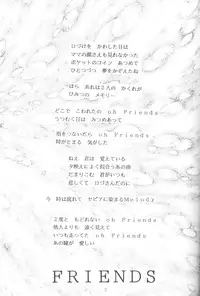 口づけを かわした日は
ママの顔さえも見れなかった
ポケットのコイン あつめて
ひとつづつ 夢をかぞえたね
ほら あれは2人の かくれが
ひみつの メモリー
どこで こわれたの oh Friends
うつむく日は みつめあって
指をつないだら oh Friends
時がとまる 気がした
ねえ 君は 覚えている
夕映えに よく似合うあの曲
だまりこむ 君がいつも
悲しくて 口づさんだのに
今 時は流れて セピアに染まるMelody
2度と もどれない oh Friends
他人よりも 遠く見えて
いつも走ってた oh Friends
あの瞳が 愛しい
FRIENDS